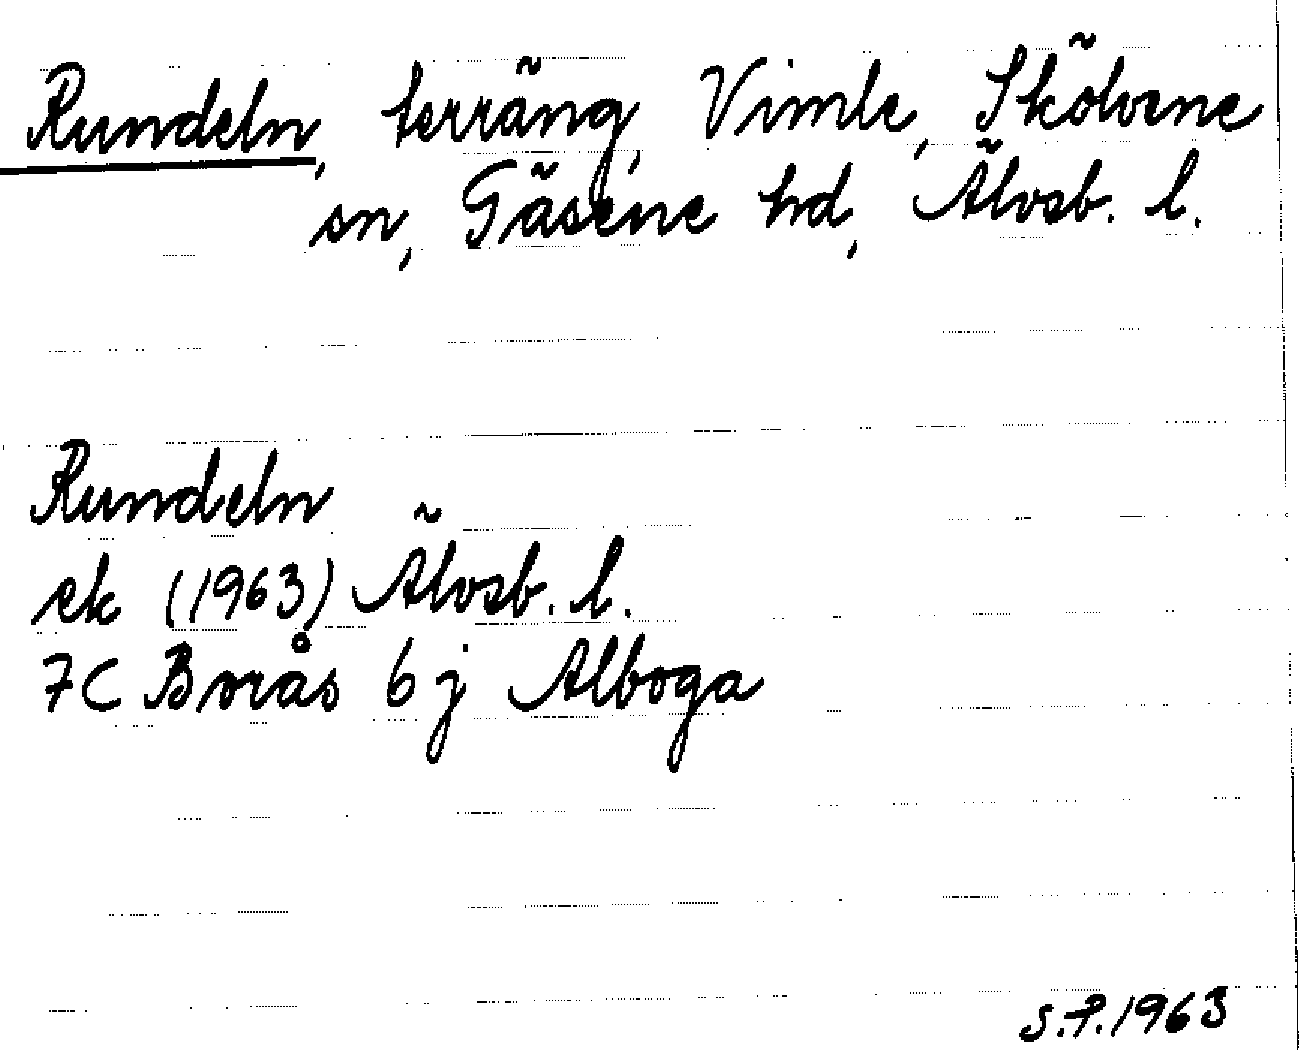 Rundeln, terräng, Vimle, Skölvene
sn, Gäsene hd, Älvsb. l.
Rundeln
ek (1963) Älvsb. l.
7C Borås 6 j Alboga
S.P. 1963